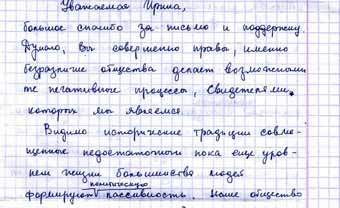 Уважаемая Ирина,
большое спасибо за письмо и поддержку.
Думаю, вы совершенно правы, именно
безразличие общества делает возможными
те негативные процессы, свидетелями
которых мы являемся.
Видимо исторические традиции совме-
щенные недостаточным пока еще уров-
нем жизни большинства людей
политическую
формируют пассивность. Наше общество